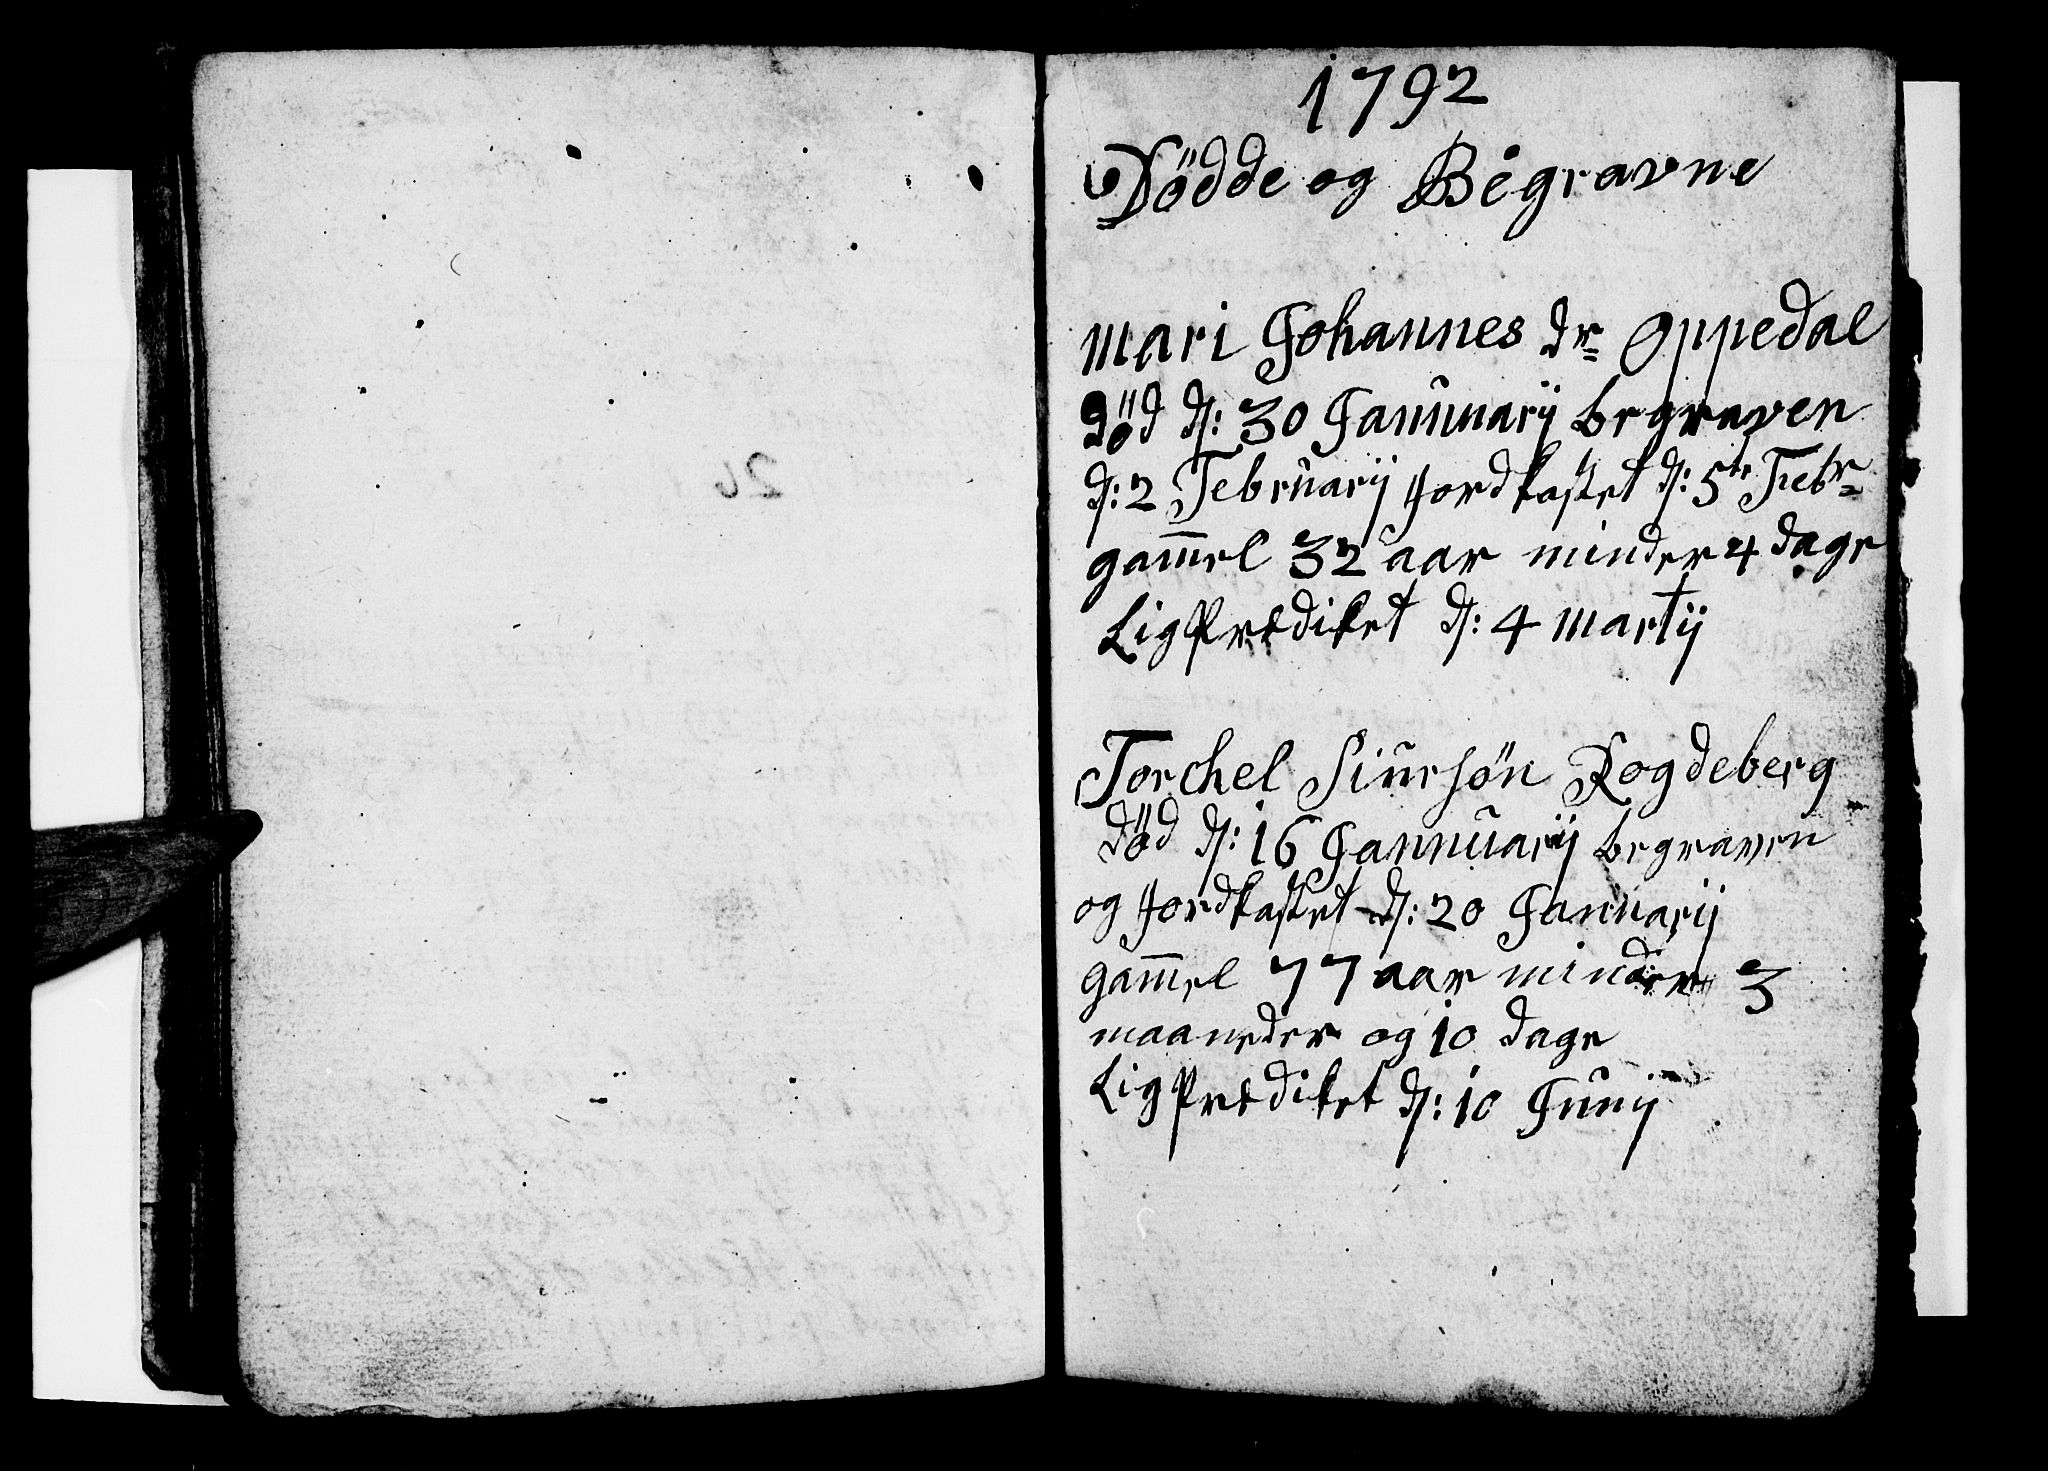 1792
Dödde og Begravne
Mari Johannes dr Oppedal
död d: 30 Januuarij begraven
d: 2 Februarij Jordkastet d: 5te Febr
gam̅el 32 aar minder 4 dage
LigPrædiket d: 4 Martij
Torchel Siursön Rogdeberg
död d: 16 Jannuarij begraven
og Jordkastet d: 20 Januarij
gam̅el 77 aar minder 3
maaneder og 10 dage
LigPrædiket d: 10 Junij